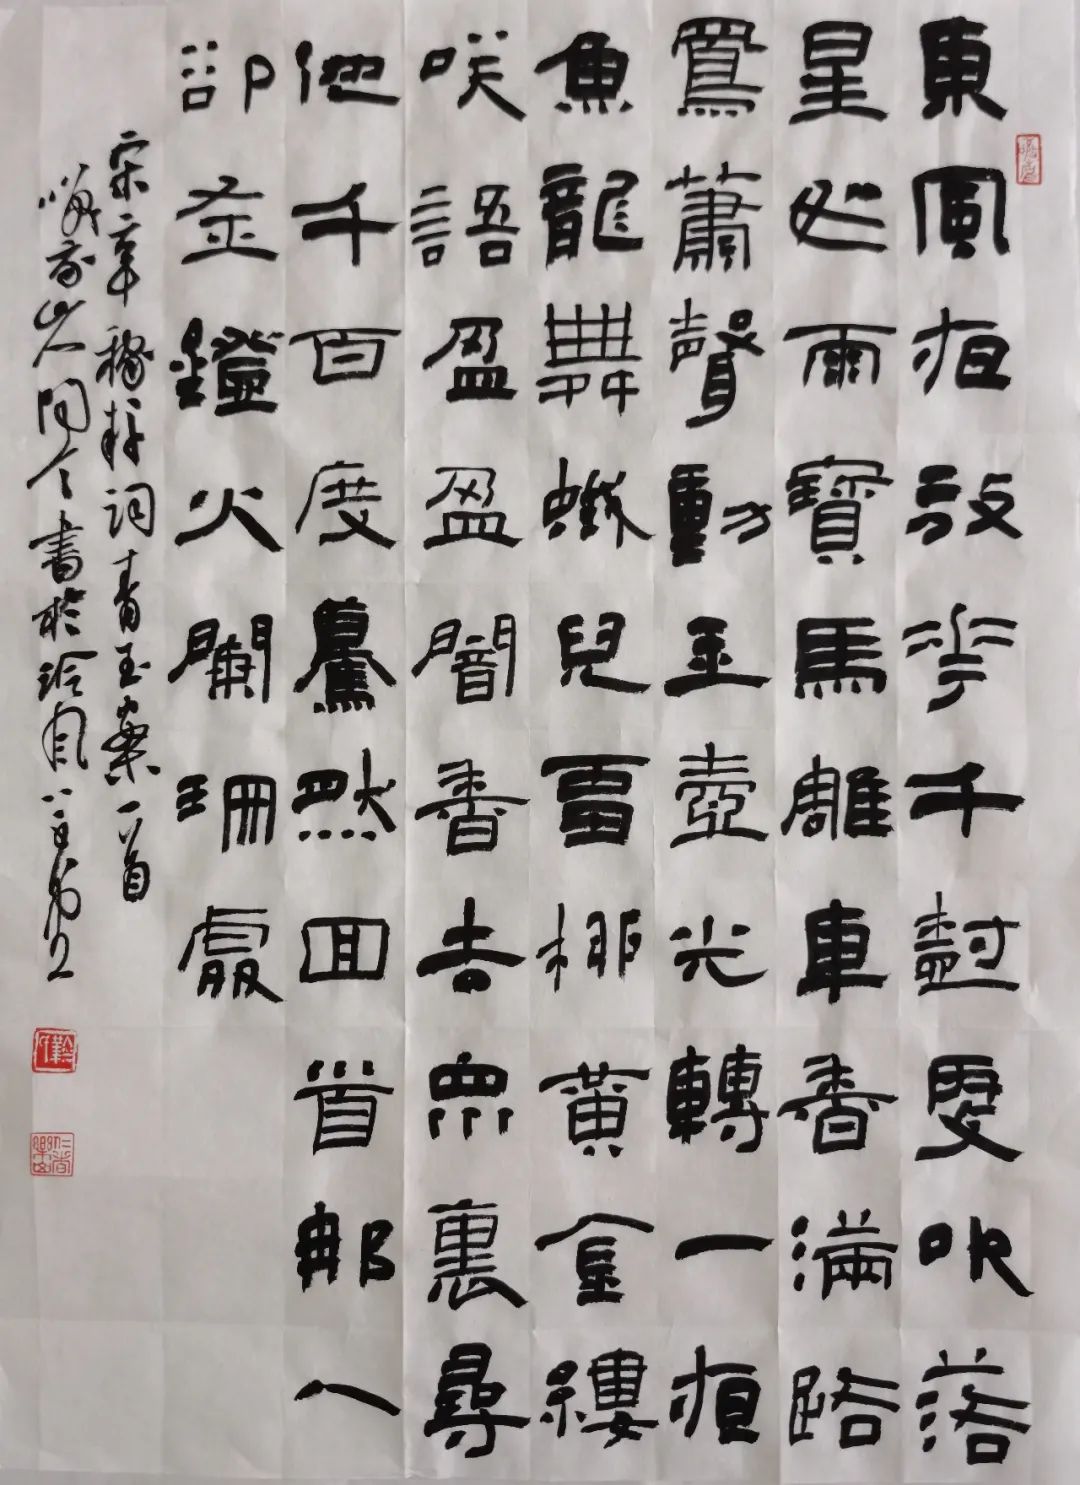 東風夜放花千樹更吹落
星如雨寶馬雕車香滿路
鳳簫聲動玉壺光轉一夜
魚龍舞蛾兒雪柳黃金縷
咲語盈盈闇香去眾裏尋
他千百度驀然回首那人
卻在鐙火闌珊處
宋辛稼軒詞青玉案一首
山人書於